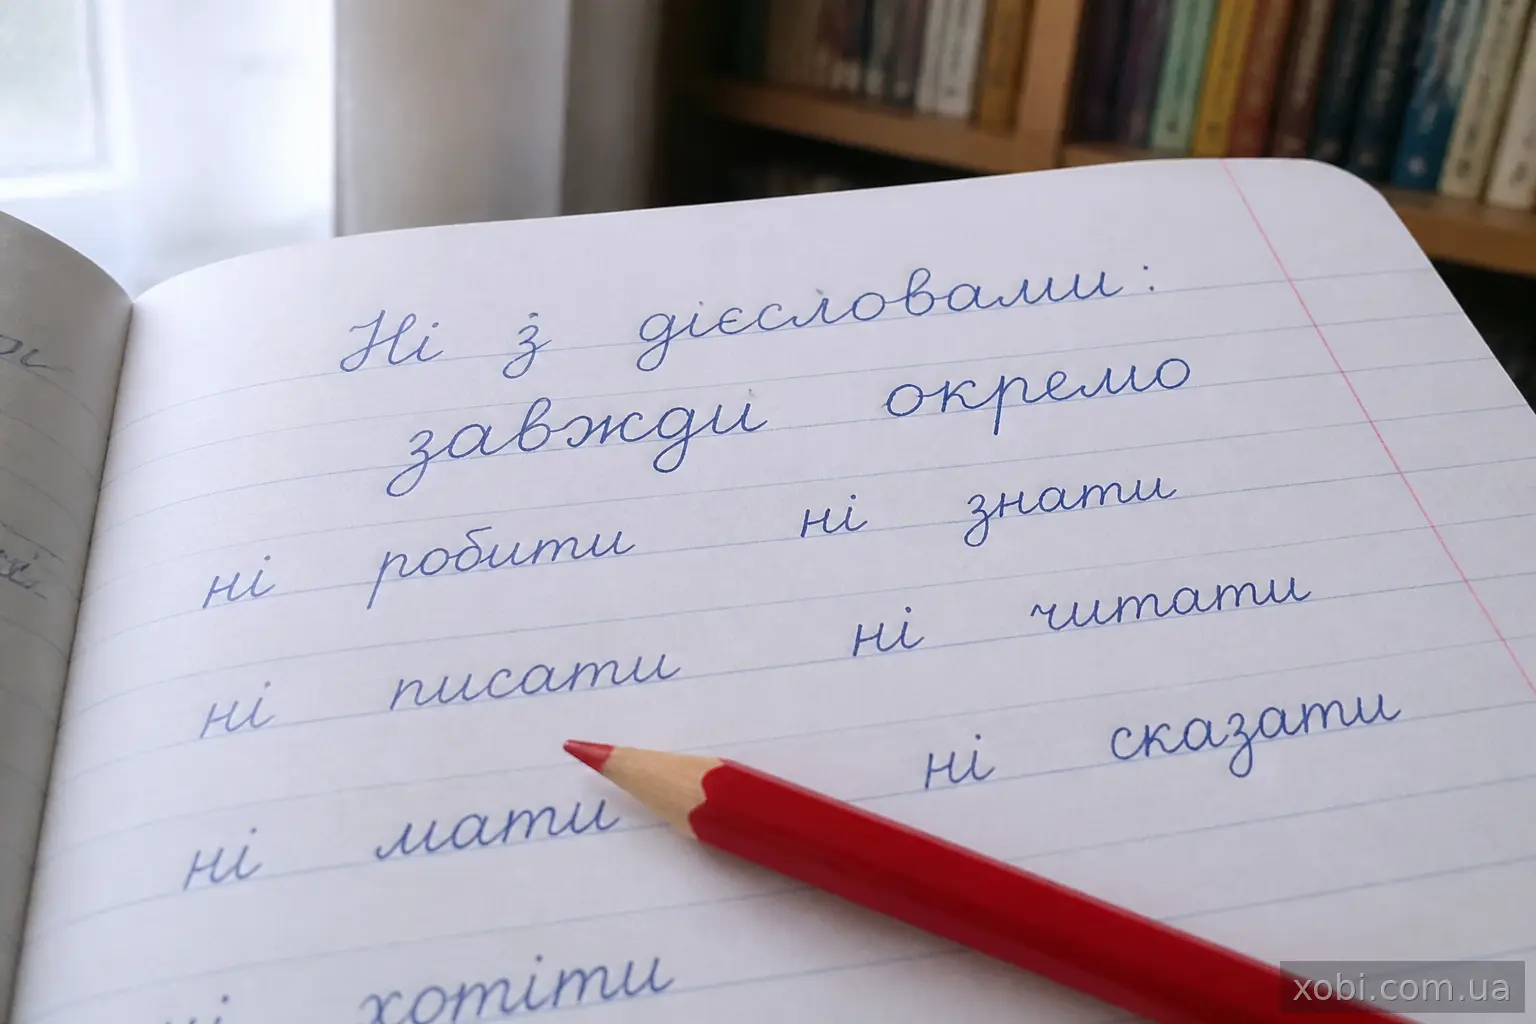 Ні з дієсловами:
завжди окремо
ні робити ні знати
ні писати ні читати
ні мати ні сказати
ні хотіти
xobi.com.ua